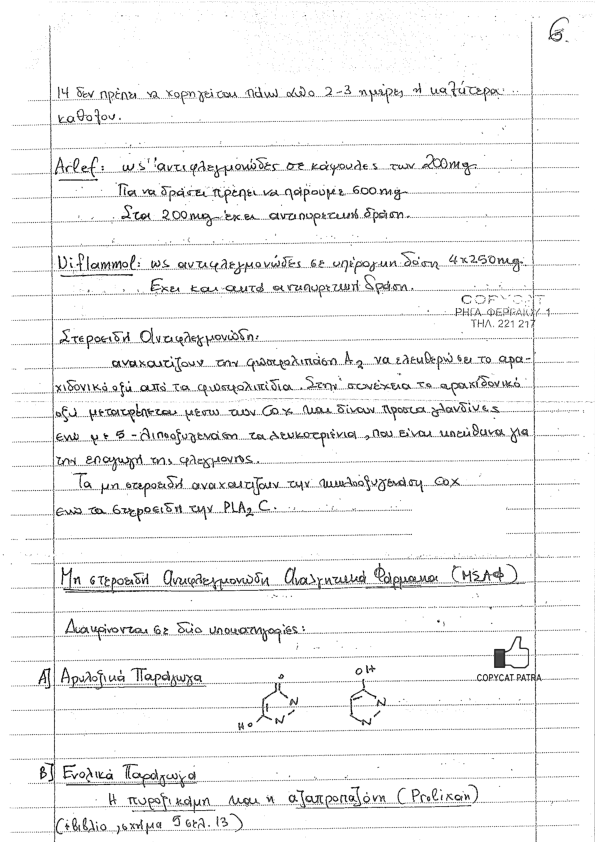 6
14 δεν πρέπει να χορηγείται πάνω από 2-3 ημέρες ή καλύτερα
καθόλου.
Arlef: ως αντιφλεγμονώδες σε κάψουλες των 200mg.
Για να δράσει πρέπει να πάρουμε 600mg
Στα 200mg έχει αντιπυρετική δράση.
Niflammol: ως αντιφλεγμονώδες σε υπέρογκη δόση 4x250mg.
Έχει και αυτό αντιπυρετική δράση.
COPYCAT
ΡΗΓΑ ΦΕΡΡΑΙΟΥ 1
ΤΗΛ. 221 217
Στεροειδή Αντιφλεγμονώδη:
αναχαιτίζουν την φωσφολιπάση A2 να ελευθερώσει το αρα-
χιδονικό οξύ από τα φωσφολιπίδια. Στην συνέχεια το αραχιδονικό
οξύ μετατρέπεται μέσω των Cox και δίνουν προσταγλανδίνες
ενώ με 5-λιποξυγενάση τα λευκοτριένια, που είναι υπεύθυνα για
την επαγωγή της φλεγμονής.
Τα μη στεροειδή αναχαιτίζουν την κυκλοξυγενάση Cox
ενώ τα στεροειδή την PLA2 C.
Μη στεροειδή Αντιφλεγμονώδη Αναλγητικά Φάρμακα (ΜΣΑΦ)
Διακρίνονται σε δύο υποκατηγορίες:
Α] Αρυλοξικά Παράγωγα
O
N
N
HO
OH
N
N
COPYCAT PATRA
Β] Ενολικά Παράγωγα
Η πυροξικάμη και η αζαπροπαζόνη (Prolixan)
(βιβλίο, σχήμα 5 σελ. 13)